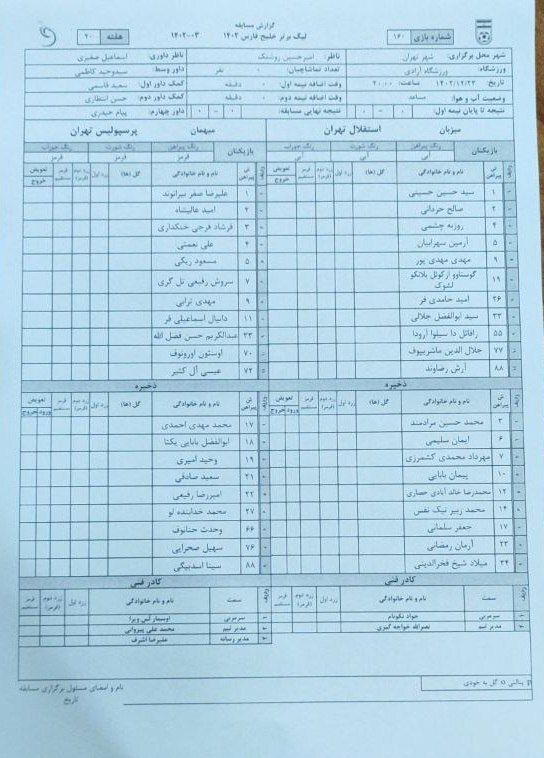 گزارش مسابقه
لیگ برتر خلیج فارس ۱۴۰۲
۱۴۰۲-۰۰۳
شماره بازی ۱۶۰
هفته ۲۰
شهر محل برگزاری: شهر تهران
ناظر: امیرحسین روشنک
ناظر داوری: اسماعیل صفیری
ورزشگاه: ورزشگاه آزادی
تعداد تماشاچیان: ۰ نفر
داور وسط: سیدوحید کاظمی
تاریخ ۱۴۰۲/۱۲/۲۳ ساعت: ۲۰:۰۰
وقت اضافه نیمه اول: ۰ دقیقه
کمک داور اول: سعید قاسمی
وضعیت آب و هوا: مساعد
وقت اضافه نیمه دوم: ۰ دقیقه
کمک داور دوم: حسن انتظاری
نتیجه تا پایان نیمه اول: ۰ - ۰
نتیجه نهایی مسابقه: ۰ - ۰
داور چهارم: پیام حیدری
میزبان استقلال تهران
میهمان پرسپولیس تهران
بازیکنان رنگ پیراهن رنگ شورت رنگ جوراب
آبی آبی آبی
بازیکنان رنگ پیراهن رنگ شورت رنگ جوراب
قرمز قرمز قرمز
ردیف ش پیراهن نام و نام خانوادگی گل (ها) زرد اول زرد دوم (قرمز) قرمز مستقیم تعویض خروج
۱ سید حسین حسینی
۲ صالح حردانی
۴ روزبه چشمی
۵ آرمین سهرابیان
۹ مهدی مهدی پور
۱۹ گوستاوو ازکوئل بلانکو لشوک
۲۶ امید حامدی فر
۳۳ سید ابوالفضل جلالی
۵۵ رافائل دا سیلوا آرودا
۷۷ جلال الدین ماشریپوف
۸۸ آرش رضاوند
ردیف ش پیراهن نام و نام خانوادگی گل (ها) زرد اول زرد دوم (قرمز) قرمز مستقیم تعویض خروج
۱ علیرضا صفر بیرانوند
۲ امید عالیشاه
۳ فرشاد فرجی خنکداری
۴ علی نعمتی
۵ مسعود ریگی
۷ سروش رفیعی تل گری
۹ مهدی ترابی
۱۱ دانیال اسماعیلی فر
۳۳ عبدالکریم حسن فضل الله
۷۰ اوستون اورونوف
۷۲ عیسی آل کثیر
ذخیره
ردیف ش پیراهن نام و نام خانوادگی گل (ها) زرد اول زرد دوم (قرمز) قرمز مستقیم تعویض ورود خروج
۳ محمد حسین مرادمند
۶ ایمان سلیمی
۷ مهرداد محمدی کشمرزی
۱۰ پیمان بابایی
۱۲ محمدرضا خالد آبادی حصاری
۱۴ محمد زبیر نیک نفس
۱۷ جعفر سلمانی
۲۳ آرمان رمضانی
۳۴ میلاد شیخ فخرالدینی
ذخیره
ردیف ش پیراهن نام و نام خانوادگی گل (ها) زرد اول زرد دوم (قرمز) قرمز مستقیم تعویض ورود خروج
۱۷ محمد مهدی احمدی
۱۸ ابوالفضل بابایی یکتا
۱۹ وحید امیری
۲۱ سعید صادقی
۲۲ امیررضا رفیعی
۲۷ محمد خدابنده لو
۶۶ وحدت حنانوف
۷۶ سهیل صحرایی
۸۸ سینا اسدبیگی
کادر فنی
ردیف سمت نام و نام خانوادگی زرد اول زرد دوم (قرمز) قرمز مستقیم
۱ سرمربی جواد نکونام
۲ مدیر تیم نصرالله خواجه گمری
کادر فنی
ردیف سمت نام و نام خانوادگی زرد اول زرد دوم (قرمز) قرمز مستقیم
۱ سرمربی اوسمار لُس ویرا
۲ مدیر تیم محمد علی پیروانی
۳ مدیر رسانه علیرضا اشرف
گل به خودی
نام و امضای مسئول برگزاری مسابقه
تاریخ